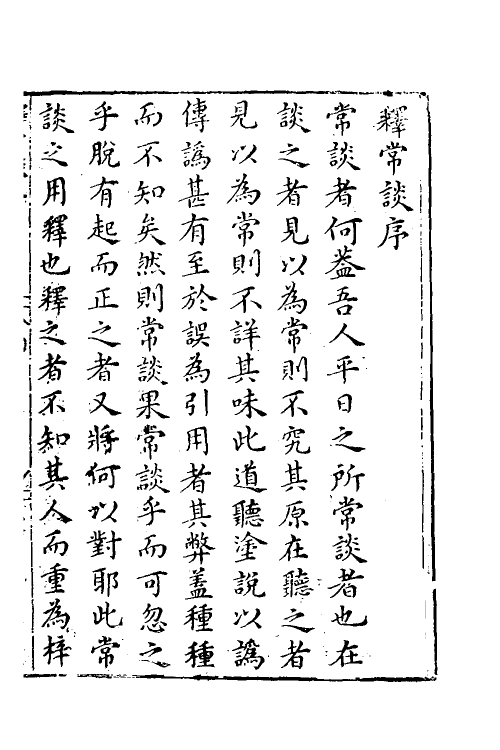 釋常談序
常談者何葢吾人平日之所常談者也在
談之者見以為常則不究其原在聽之者
見以為常則不詳其味此道聽塗說以譌
傳譌甚有至於誤為引用者其弊蓋種種
而不知矣然則常談果常談乎而可忽之
乎脫有起而正之者又將何以對耶此常
談之用釋也釋之者不知其人而重為梓